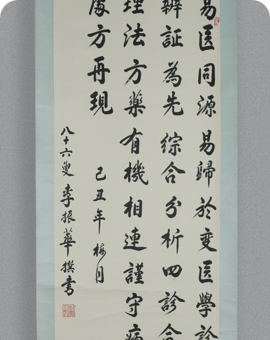 易医同源易歸於变医學診
辨証為先綜合分析四診合
理法方藥有機相連謹守病
方再現 己丑年梅月
八十六叟李振華撰書